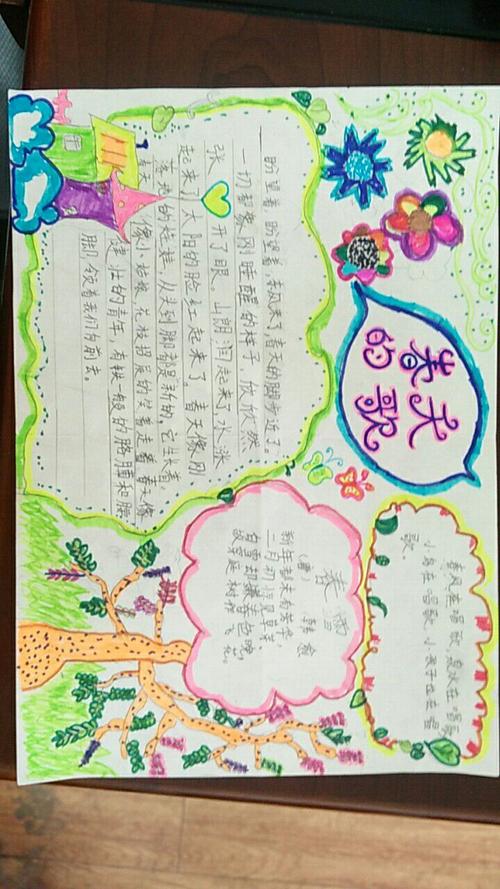 春天
的歌
盼望着,盼望着,东风来了,春天的脚步近了。
一切都象刚睡醒的样子,欣欣然
张开了眼。山朗润起来了,水涨
起来了,太阳的脸红起来了。春天像刚
落地的娃娃,从头到脚都是新的,它生长着。
春天像小姑娘,花枝招展的,笑着走着。春天像
健壮的青年,有铁一般的胳膊和腰
脚,领着我们向前去。
春风在唱歌,泉水在唱歌
小鸟在唱歌,小孩子也在唱
歌
春雪
(唐) 韩愈
新年都未有芳华,
二月初惊见草芽。
白雪却嫌春色晚,
故穿庭树作飞花。